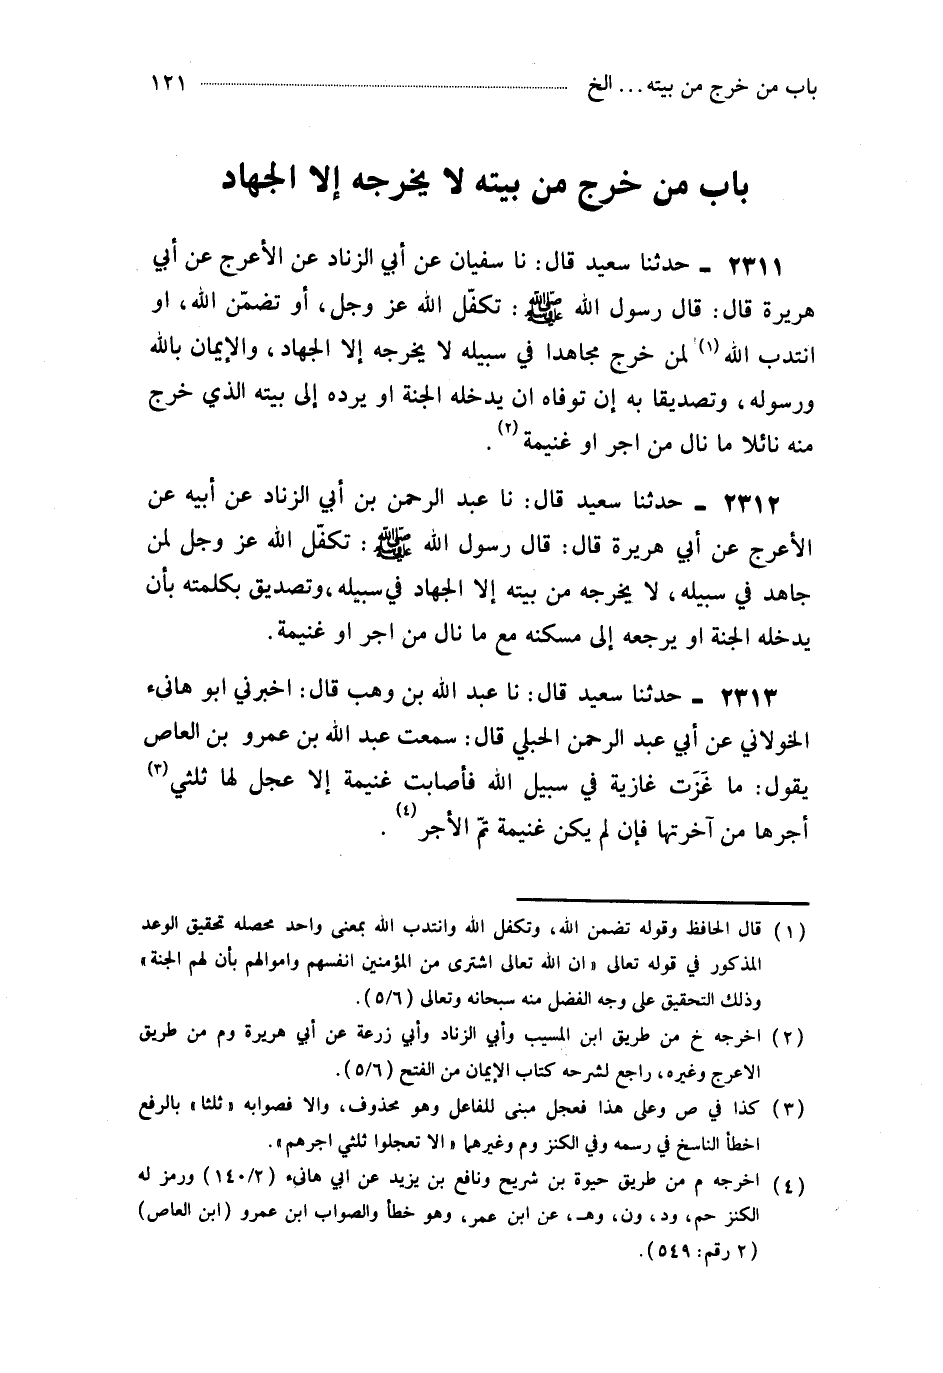 باب من خرج من بيته ... الخ ١٢١
باب من خرج من بيته لا يخرجه إلا الجهاد
٢٣١١ ـ حدثنا سعيد قال: نا سفيان عن أبي الزناد عن الأعرج عن أبي
هريرة قال: قال رسول الله ﷺ: تكفّل الله عز وجل، أو تضمّن الله، او
انتدب الله (١) لمن خرج مجاهدا في سبيله لا يخرجه إلا الجهاد، والإيمان بالله
ورسوله، وتصديقا به إن توفاه ان يدخله الجنة او يرده إلى بيته الذي خرج
منه نائلا ما نال من اجر او غنيمة (٢).
٢٣١٢ ـ حدثنا سعيد قال: نا عبد الرحمن بن أبي الزناد عن أبيه عن
الأعرج عن أبي هريرة قال: قال رسول الله ﷺ: تكفّل الله عز وجل لمن
جاهد في سبيله، لا يخرجه من بيته إلا الجهاد في سبيله، وتصديق بكلمته بأن
يدخله الجنة او يرجعه إلى مسكنه مع ما نال من اجر او غنيمة.
٢٣١٣ ـ حدثنا سعيد قال: نا عبد الله بن وهب قال: اخبرني ابو هانىء
الخولاني عن أبي عبد الرحمن الحبلي قال: سمعت عبد الله بن عمرو بن العاص
يقول: ما غَزَت غازية في سبيل الله فأصابت غنيمة إلا عجل لها ثلثي (٣)
أجرها من آخرتها فإن لم يكن غنيمة تمّ الأجر (٤).
(١) قال الحافظ وقوله تضمن الله، وتكفل الله وانتدب الله بمعنى واحد محصله تحقيق الوعد
المذكور في قوله تعالى «ان الله تعالى اشترى من المؤمنين انفسهم واموالهم بأن لهم الجنة»
وذلك التحقيق على وجه الفضل منه سبحانه وتعالى (٥/٦).
(٢) اخرجه خ من طريق ابن المسيب وأبي الزناد وأبي زرعة عن أبي هريرة وم من طريق
الاعرج وغيره، راجع لشرحه كتاب الإيمان من الفتح (٥/٦).
(٣) كذا في ص وعلى هذا فعجل مبنى للفاعل وهو محذوف، والا فصوابه «ثلثا» بالرفع
اخطأ الناسخ في رسمه وفي الكنز وم وغيرهما «الا تعجلوا ثلثي اجرهم».
(٤) اخرجه م من طريق حيوة بن شريح ونافع بن يزيد عن ابي هانىء (١٤٠/٢) ورمز له
الكنز حم، ود، ون، وهـ، عن ابن عمر، وهو خطأ والصواب ابن عمرو (ابن العاص)
(٢ رقم: ٥٤٩).